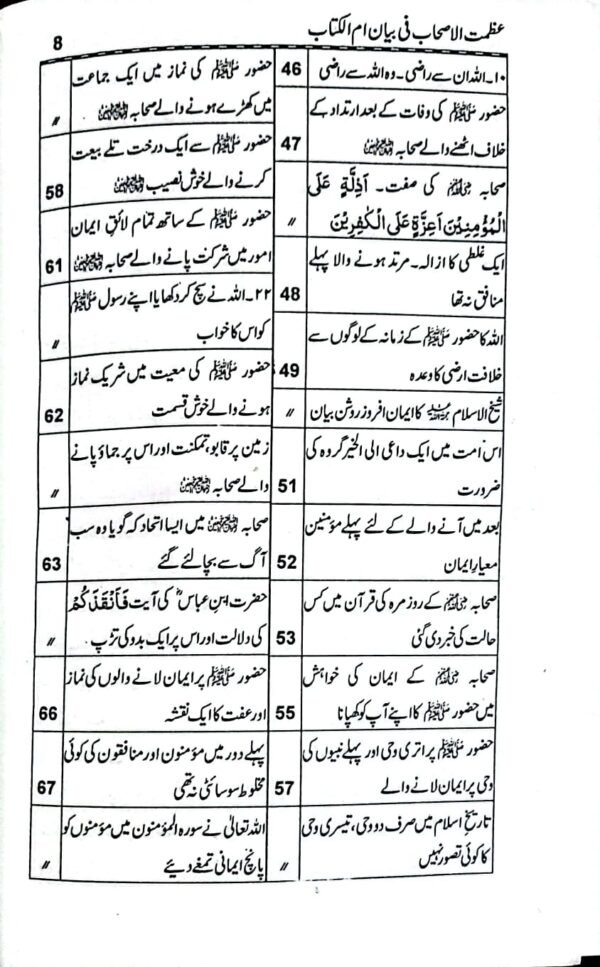 عظمت الاصحاب فی بیان ام الکتاب
8
۱۰۔اللہ ان سے راضی۔وہ اللہ سے راضی
46
حضور ﷺ کی وفات کے بعد ارتداد کے
خلاف اٹھنے والے صحابہ رضی اللہ عنہم
47
صحابہ رضی اللہ عنہم کی صفت۔ اَذِلَّةٍ عَلَى
الْمُؤْمِنِيْنَ اَعِزَّةٍ عَلَى الْكٰفِرِيْنَ
〃
ایک غلطی کا ازالہ۔مرتد ہونے والا پہلے
منافق نہ تھا
48
اللہ کا حضور ﷺ کے زمانہ کے لوگوں سے
خلافت ارضی کا وعدہ
49
شیخ الاسلام کا ایمان افروز روشن بیان
〃
اس امت میں ایک داعی الی الخیر گروہ کی
ضرورت
51
بعد میں آنے والے کے لئے پہلے مؤمنین
معیار ایمان
52
صحابہ رضی اللہ عنہم کے روز مرہ کی قرآن میں کس
حالت کی خبر دی گئی
53
صحابہ رضی اللہ عنہم کے ایمان کی خواہش
میں حضور ﷺ کا اپنے آپ کو کھپانا
55
حضور ﷺ پر اتری وحی اور پہلے نبیوں کی
وحی پر ایمان لانے والے
57
تاریخ اسلام میں صرف دو وحی، تیسری وحی
کا کوئی تصور نہیں
〃
حضور ﷺ کی نماز میں ایک جماعت
میں کھڑے ہونے والے صحابہ رضی اللہ عنہم
〃
حضور ﷺ سے ایک درخت تلے بیعت
کرنے والے خوش نصیب رضی اللہ عنہم
58
حضور ﷺ کے ساتھ تمام لائق ایمان
امور میں شرکت پانے والے صحابہ رضی اللہ عنہم
61
۲۲۔اللہ نے سچ کر دکھایا اپنے رسول ﷺ
کو اس کا خواب
〃
حضور ﷺ کی معیت میں شریک نماز
ہونے والے خوش قسمت
62
زمین پر قابو، تمکنت اور اس پر جماؤ پانے
والے صحابہ رضی اللہ عنہم
〃
صحابہ رضی اللہ عنہم میں ایسا اتحاد کہ گویا وہ سب
آگ سے بچا لئے گئے
63
حضرت ابن عباسؓ کی آیت فَاَنْقَذَكُمْ
کی دلالت اور اس پر ایک بدو کی تڑپ
〃
حضور ﷺ پر ایمان لانے والوں کی نماز
اور عفت کا ایک نقشہ
66
پہلے دور میں مؤمنون اور منافقون کی کوئی
مخلوط سوسائٹی نہ تھی
67
اللہ تعالیٰ نے سورہ المؤمنون میں مؤمنوں کو
پانچ ایمانی تمغے دیئے
〃